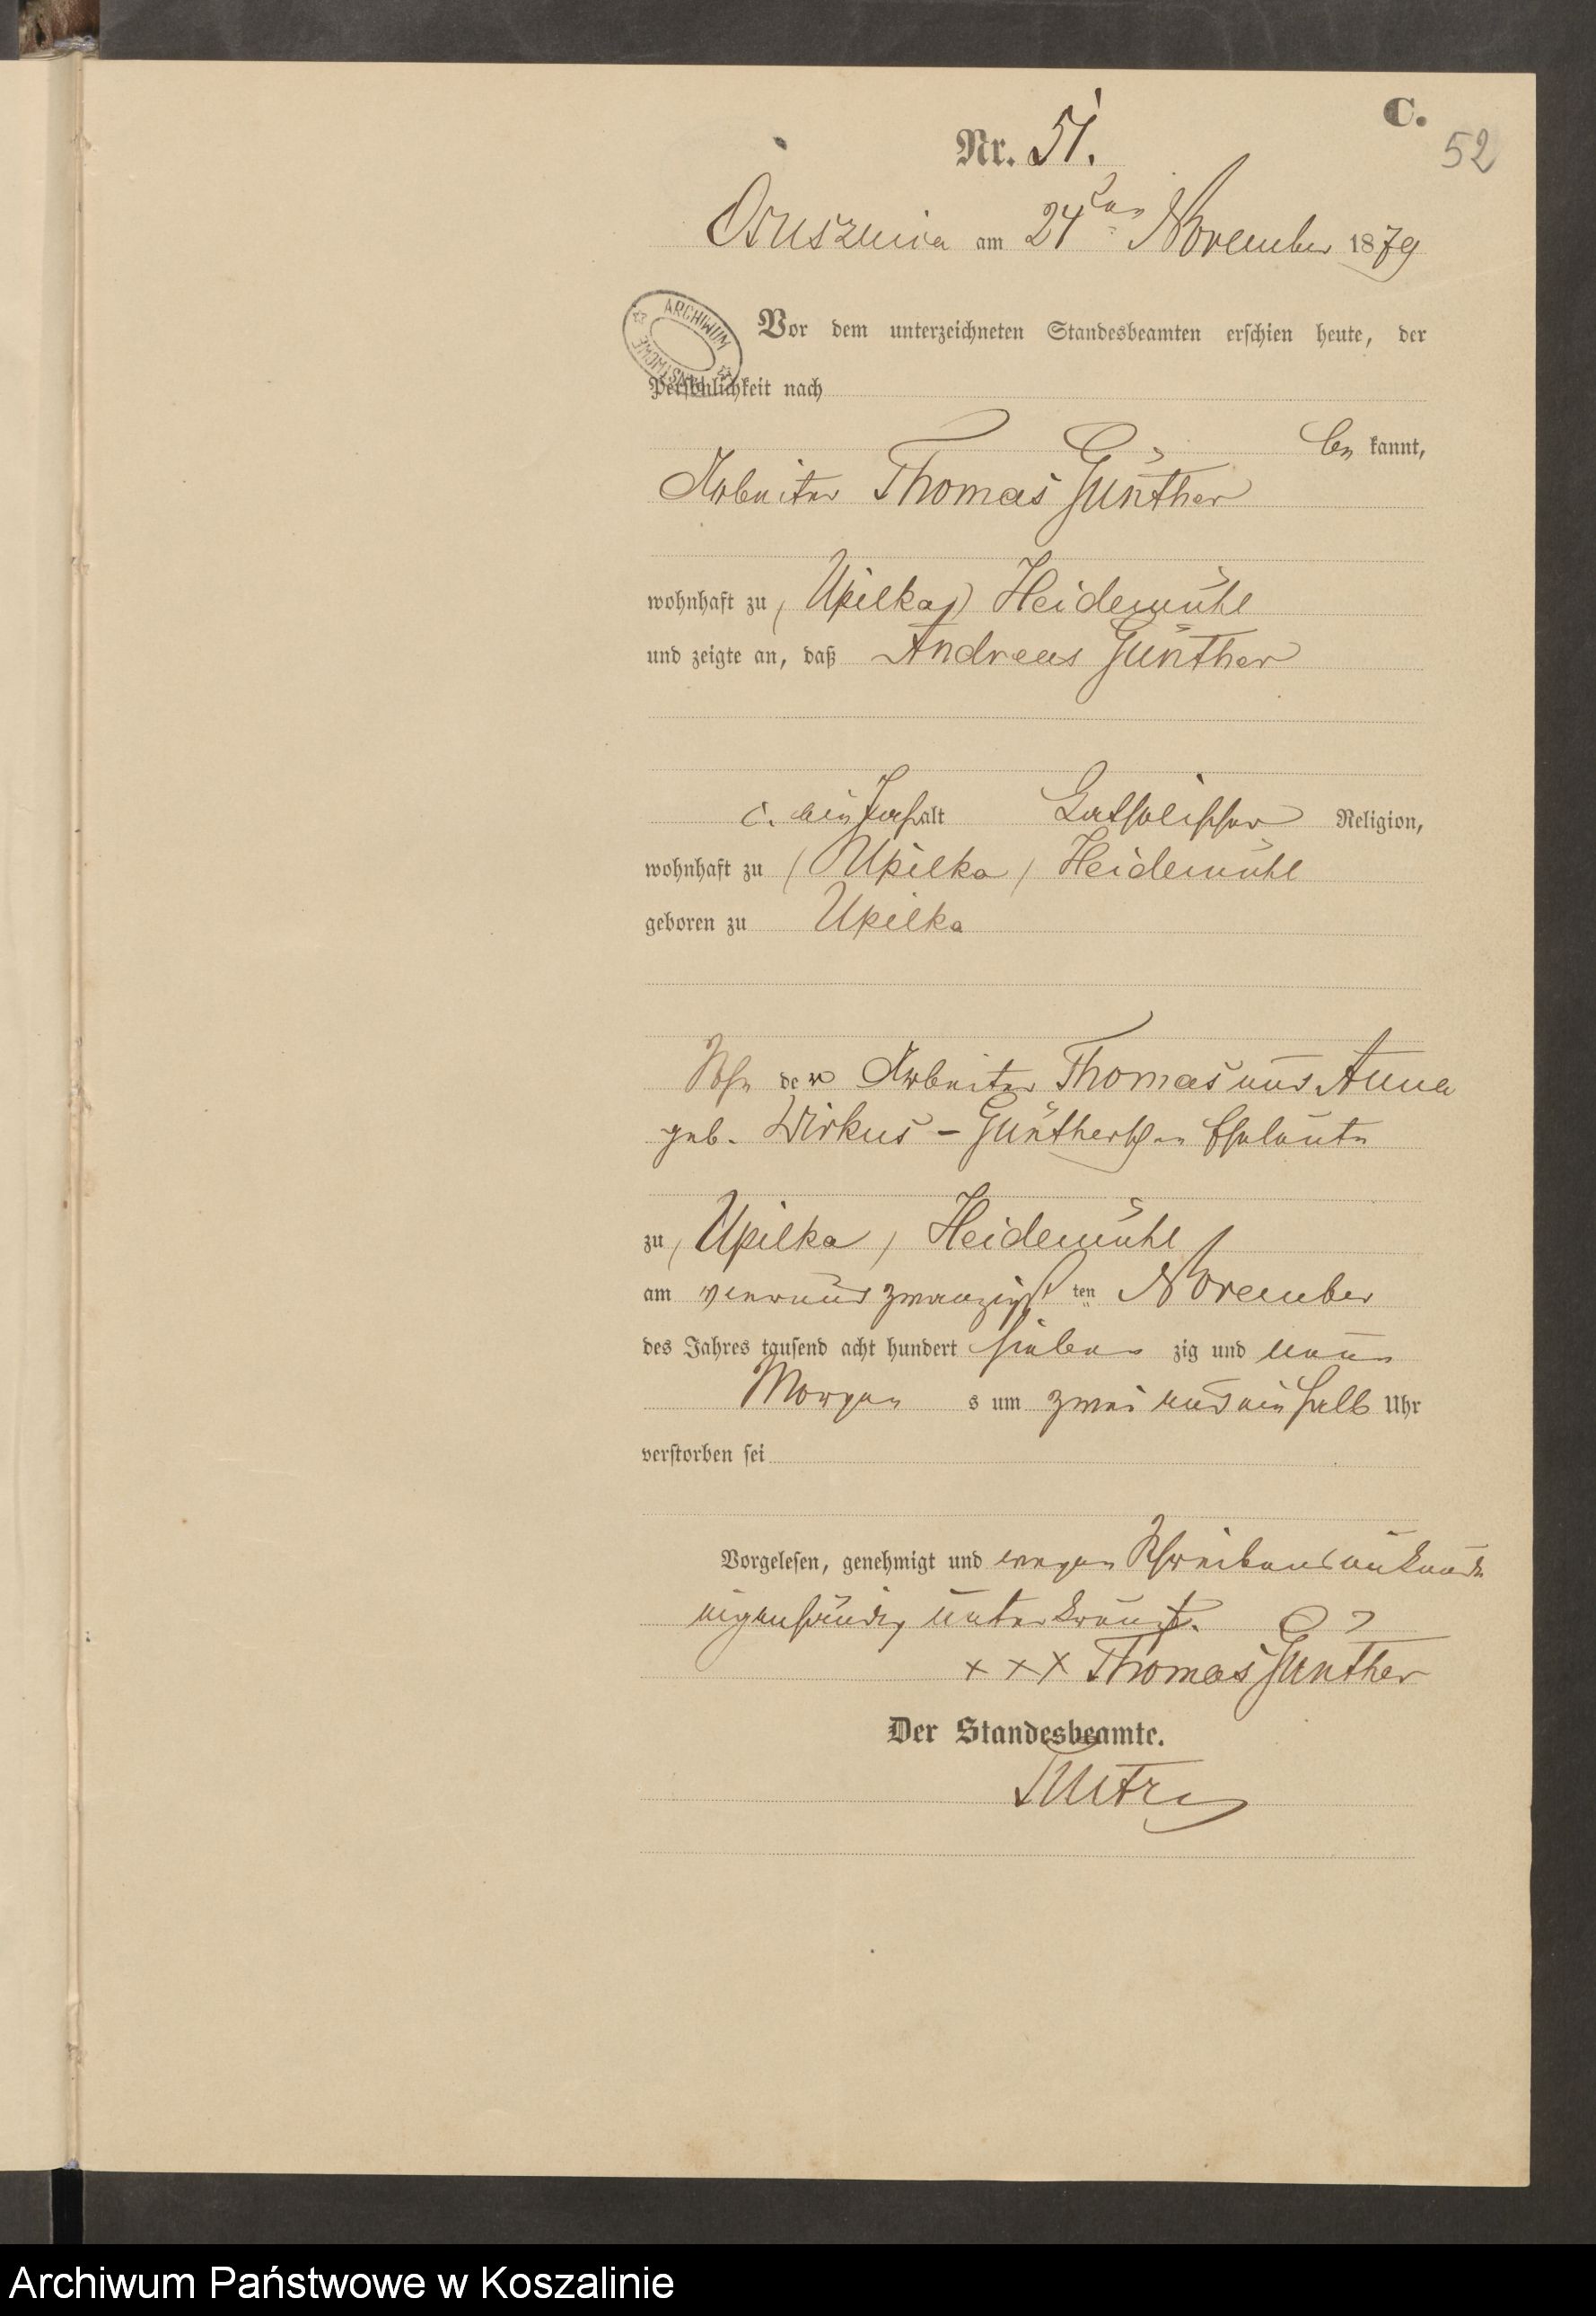 C.
Nr. 51.
52
Ossusznica am 24ten November 1879
ARCHIWUM
Vor dem unterzeichneten Standesbeamten erschien heute, der
Persönlichkeit nach
be kannt,
Arbeiter Thomas Günther
wohnhaft zu (Upilka) Heidemühl
und zeigte an, daß Andreas Günther
c. ein Jahr alt katholischer Religion,
wohnhaft zu (Upilka) Heidemühl
geboren zu Upilka
Sohn der Arbeiter Thomas und Anna
geb. Wirkus - Güntherschen Eheleute
zu (Upilka) Heidemühl
am vierundzwanzigsten November
des Jahres tausend acht hundert sieben zig und neun
Morgens um zwei und ein halb Uhr
verstorben sei
Vorgelesen, genehmigt und wegen Schreibensunkunde
eigenhändig unterkreuzt.
x x x Thomas Günther
Der Standesbeamte.
Archiwum Państwowe w Koszalinie